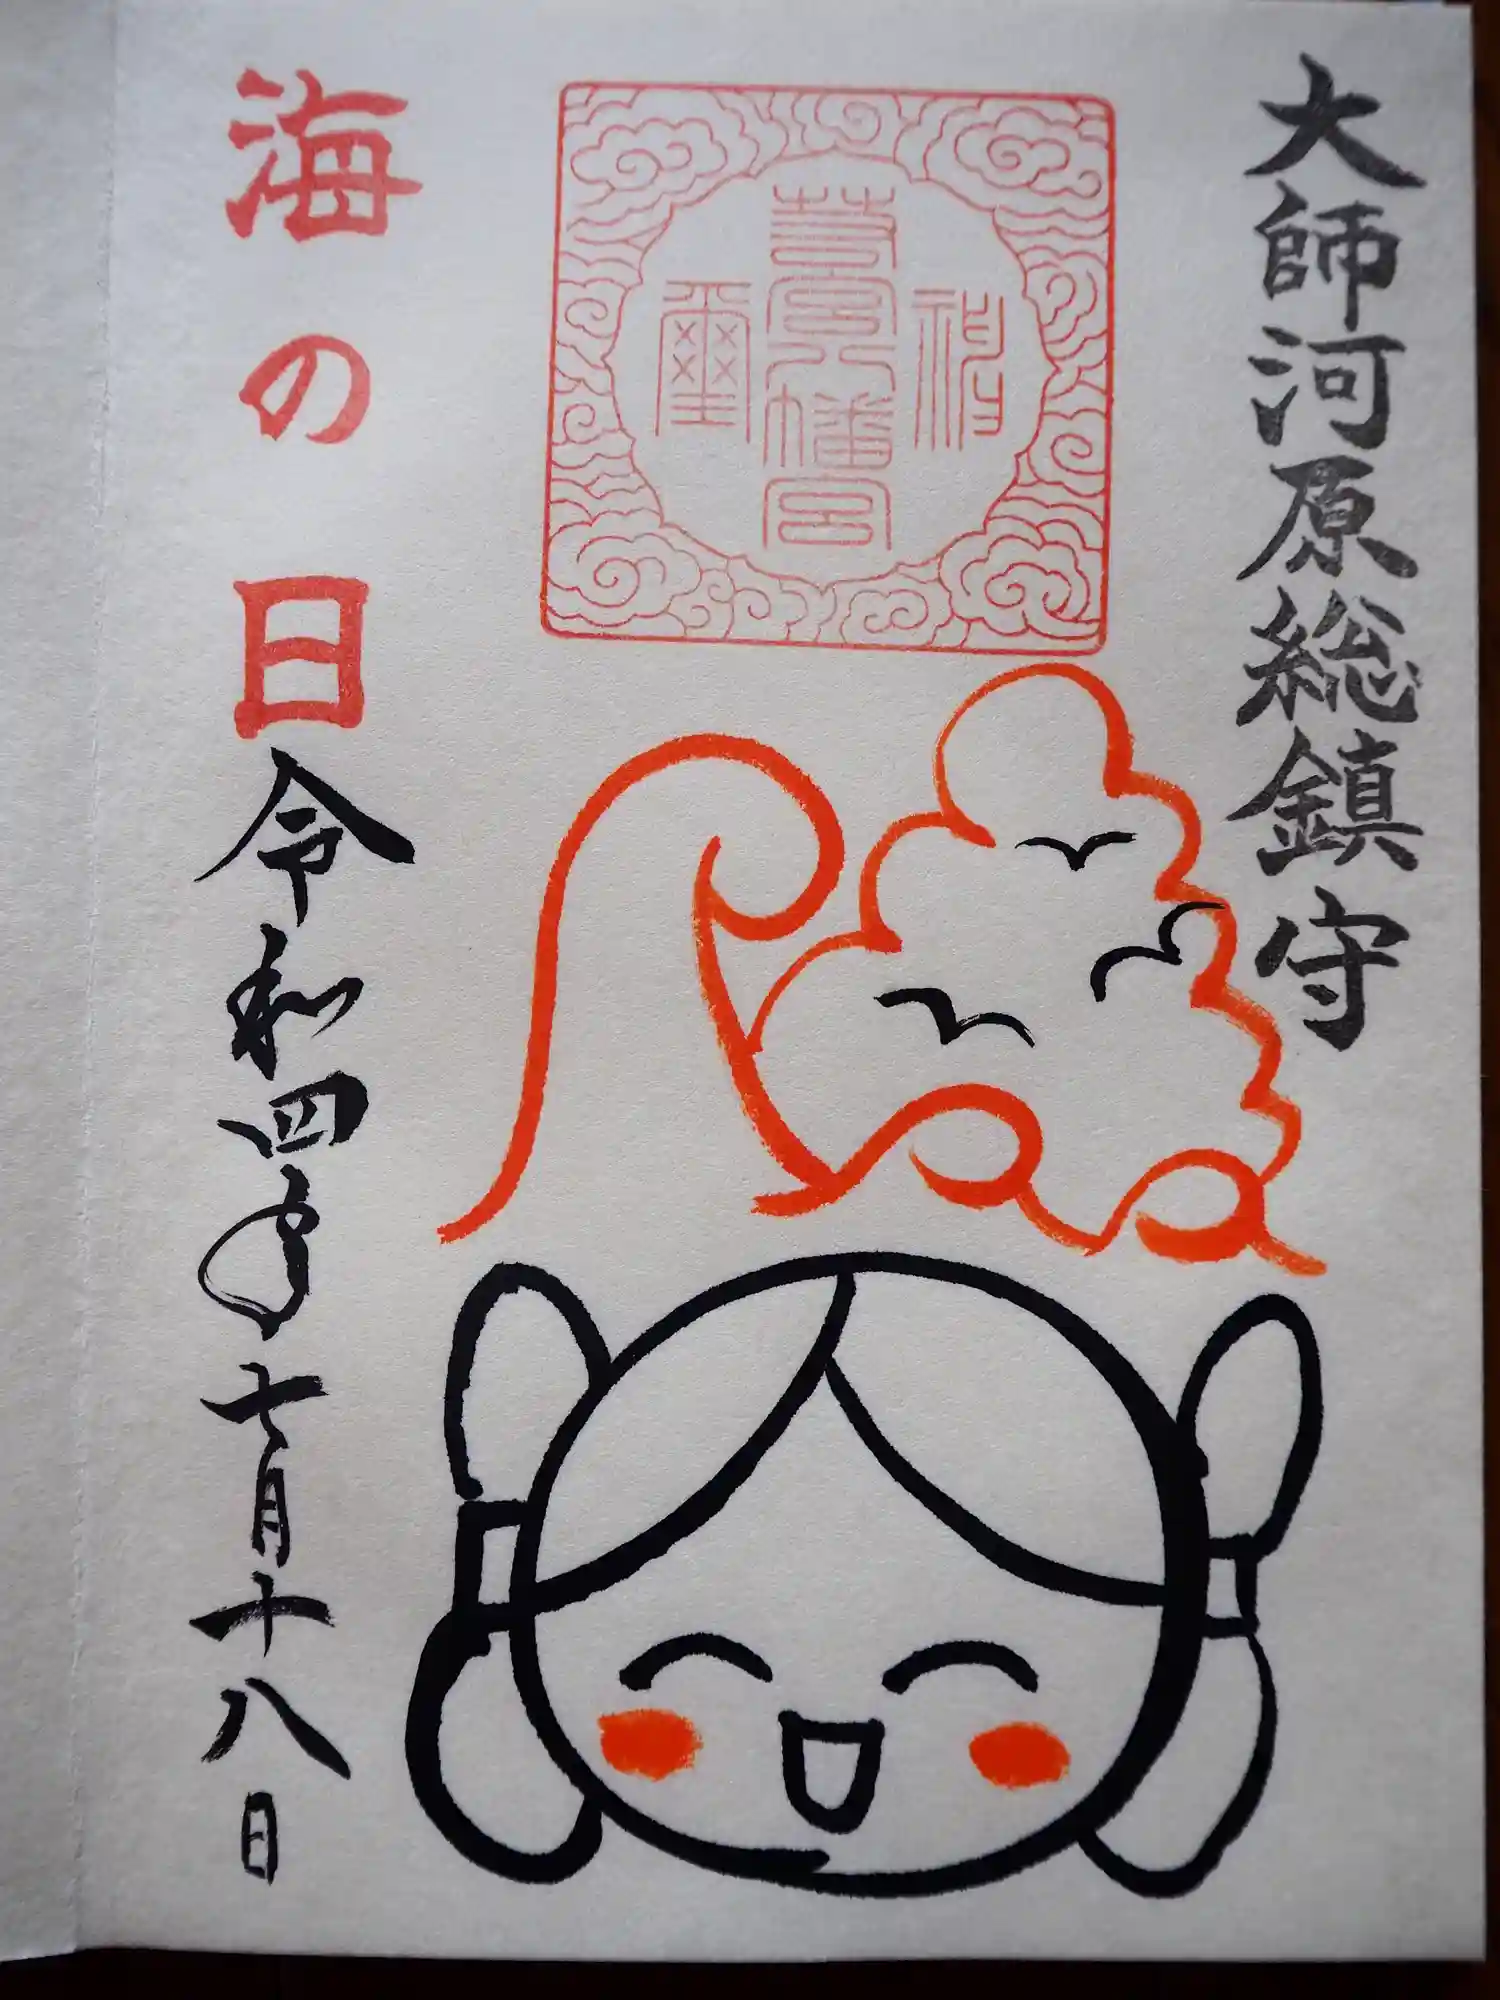 大師河原総鎮守
神
若宮八幡宮
璽
海の日
令和四年七月十八日